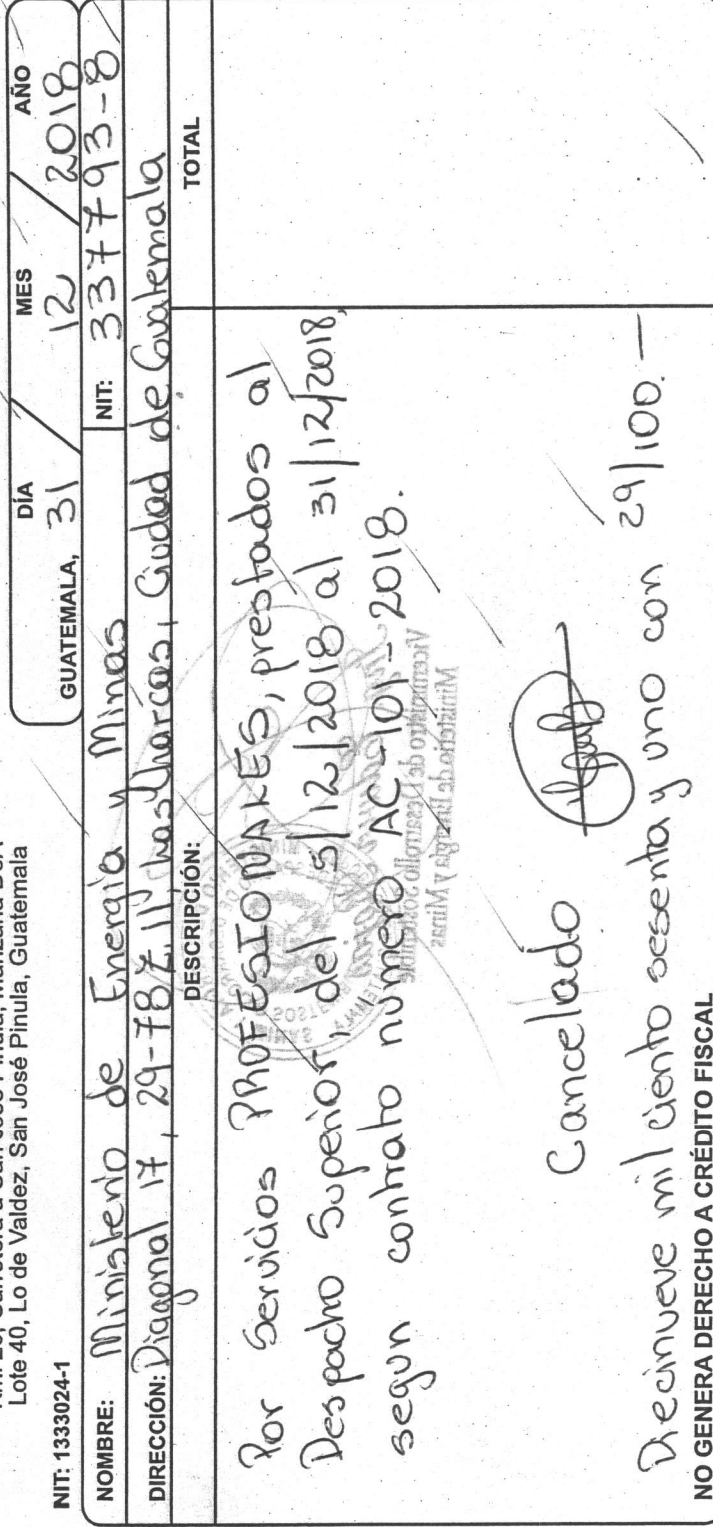 Lote 40, Lo de Valdez, San José Pinula, Guatemala
NIT: 1333024-1
DÍA MES AÑO
GUATEMALA, 31 / 12 / 2018
NOMBRE: Ministerio de Energía y Minas NIT: 337793-8
DIRECCIÓN: Diagonal 17, 29-78 Z. 11 las charcas, Ciudad de Guatemala
DESCRIPCIÓN: TOTAL
Por Servicios PROFESIONALES, prestados al
Despacho Superior, del 5/12/2018 al 31/12/2018,
segun contrato número AC-101-2018.
Viceministro de Desarrollo Sostenible
Ministerio de Energía y Minas
Cancelado
Diecinueve mil ciento sesenta y uno con 29/100.—
NO GENERA DERECHO A CRÉDITO FISCAL